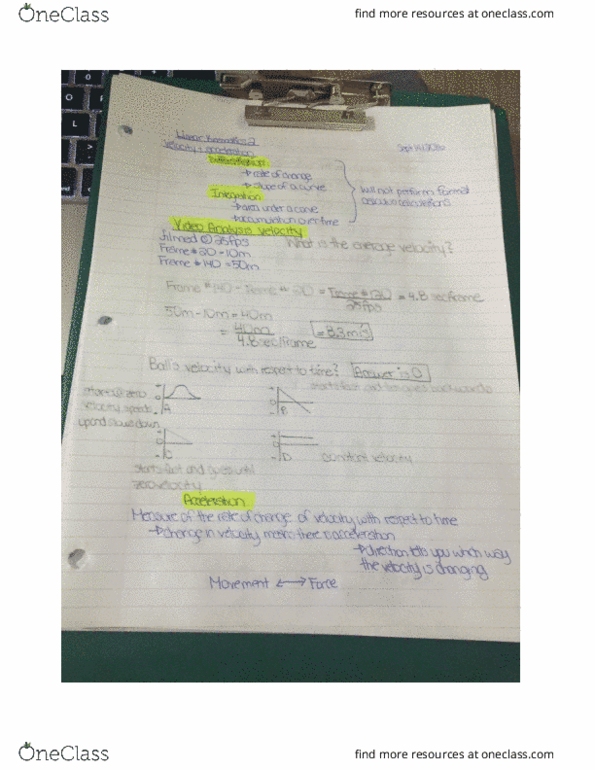 OneClass
find more resources at oneclass.com
Linear Kinematics 2
velocity + acceleration
Sept 14/2016
Differentiation
→ rate of change
→ slope of a curve
will not perform formal
calculus calculations
Integration
→ area under a curve
→ accumulation over time
Video Analysis velocity
filmed @ 25fps
What is the average velocity?
Frame #20 - 10m
Frame #140 = 50m
Frame #140 - Frame #20 = Frame #120 = 4.8 sec/frame
25fps
50m - 10m = 40m
= 40m
4.8 sec/frame
= 8.3 m/s
Ball's velocity with respect to time? Answer is
starts @ zero
velocity speeds
up and slows down
+
0
-
A
+
0
-
B
starts fast and goes backwards
+
0
-
C
+
0
-
D
constant velocity
starts fast and goes until
zero velocity
Acceleration
Measure of the rate of change of velocity with respect to time
→ change in velocity means there is acceleration
→ direction tells you which way
the velocity is changing
Movement ⟷ Force
OneClass
find more resources at oneclass.com